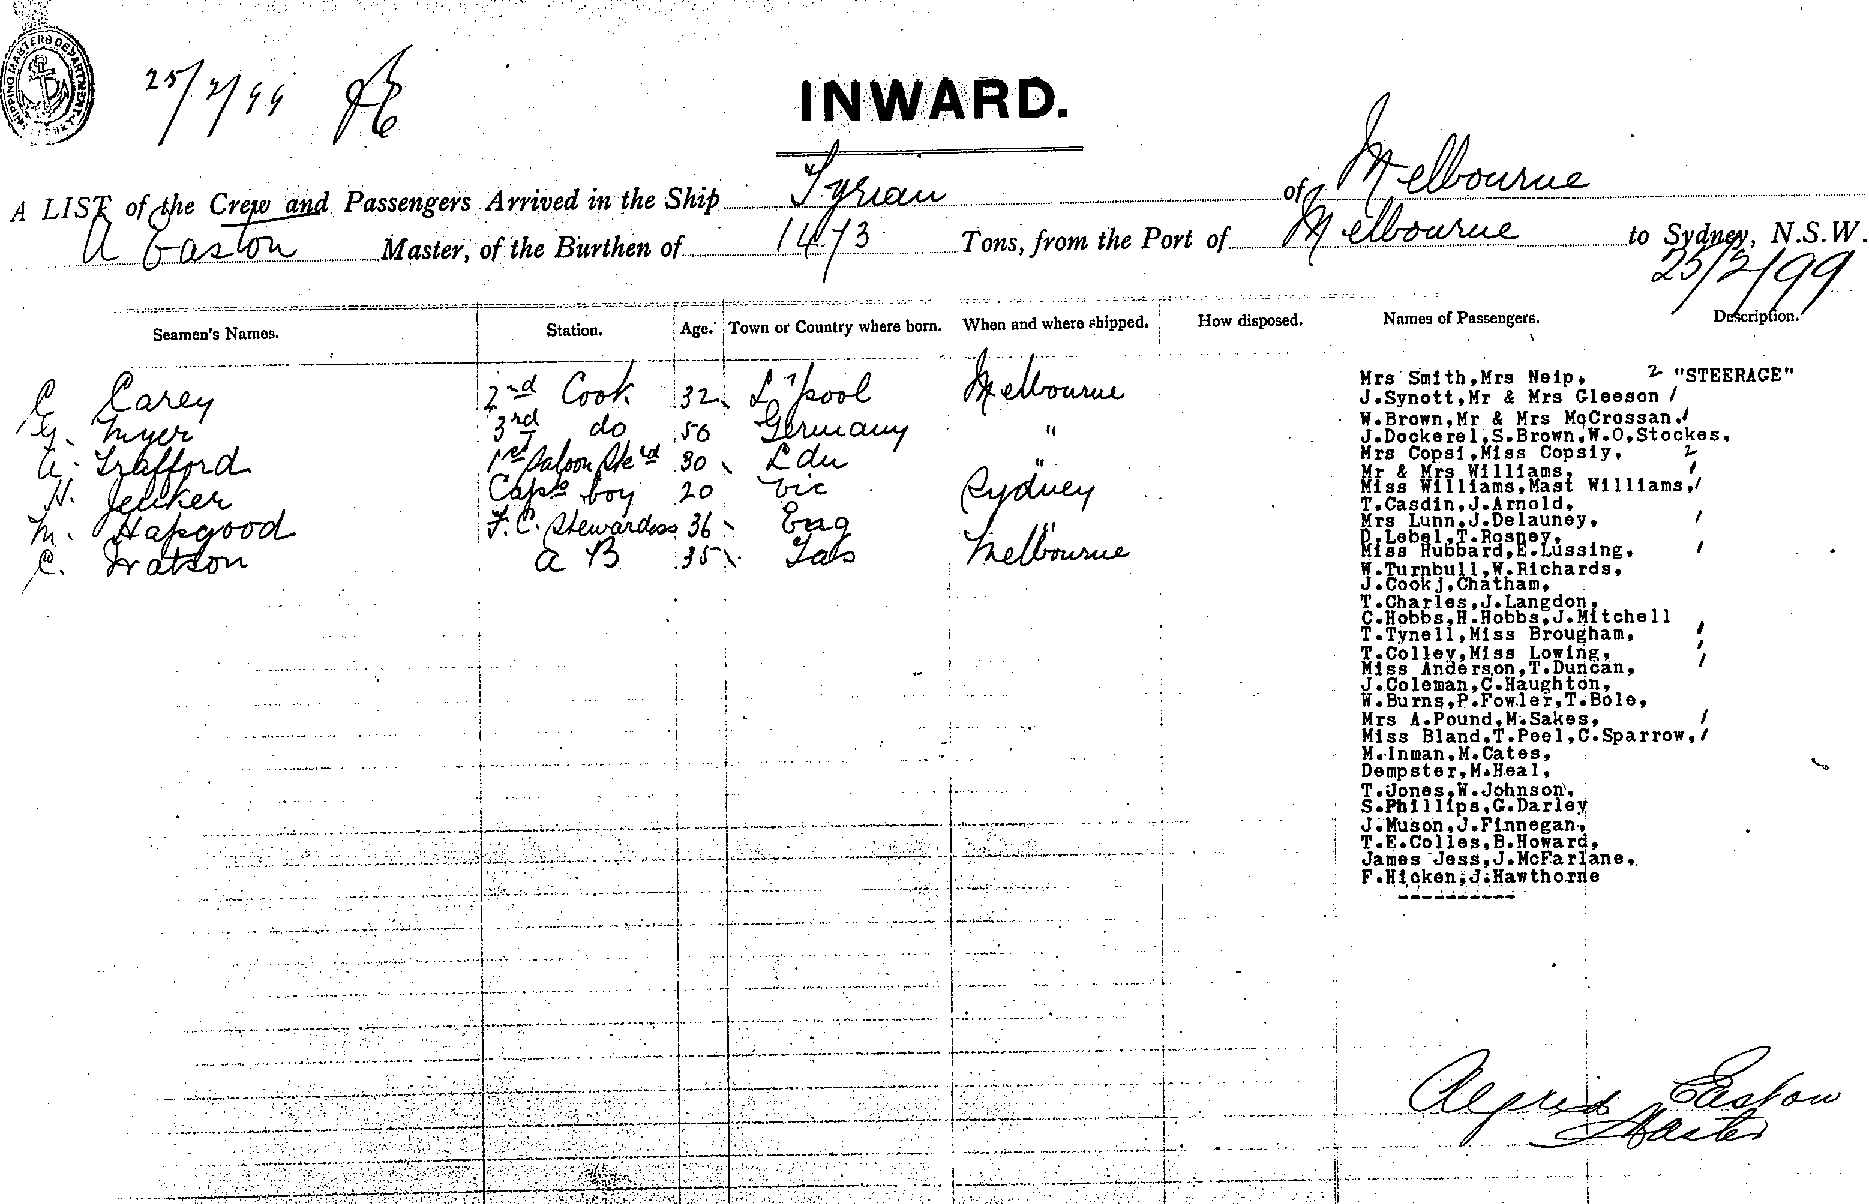 SHIPPING MASTERS DEPARTMENT
25/2/99
INWARD.
A LIST of the Crew and Passengers Arrived in the Ship Tyrian of Melbourne
A Easton Master, of the Burthen of 1473 Tons, from the Port of Melbourne to Sydney, N.S.W.
25/2/99
Seamen's Names. Station. Age. Town or Country where born. When and where shipped. How disposed. Names of Passengers. Description.
C Carey 2nd Cook 32 L'pool Melbourne
G. Myer 3rd do 50 Germany "
A. Trafford 1st Saloon Stewd 30 Ldn "
H. Jenker Capts boy 20 Vic Sydney
M. Hapgood F.C. Stewardess 36 Eng "
C. Watson A B 35 Tas Melbourne
Mrs Smith,Mrs Neip, 2 "STEERAGE"
J.Synott,Mr & Mrs Gleeson /
W.Brown,Mr & Mrs McCrossan./
J.Dockerel,S.Brown,W.O.Stockes,
Mrs Copsi,Miss Copsiy, 2
Mr & Mrs Williams, /
Miss Williams,Mast Williams,/
T.Casdin,J.Arnold,
Mrs Lunn,J.Delauney, /
D.Lebel,T.Rosney,
Miss Hubbard,E.Lussing, /
W.Turnbull,W.Richards,
J.Cookj.Chatham,
T.Charles,J.Langdon,
C.Hobbs,H.Hobbs,J.Mitchell
T.Tynell,Miss Brougham, /
T.Colley,Miss Lowing, /
Miss Anderson,T.Duncan, /
J.Coleman,C.Haughton,
W.Burns,P.Fowler,T.Bole,
Mrs A.Pound,M.Sakes, /
Miss Bland,T.Peel,C.Sparrow,/
M.Inman,M.Cates,
Dempster,M.Heal,
T.Jones,W.Johnson,
S.Phillips,G.Darley
J.Muson,J.Finnegan,
T.E.Colles,B.Howard,
James Jess,J.McFarlane,
F.Hicken,J.Hawthorne
Alfred Easton
Master